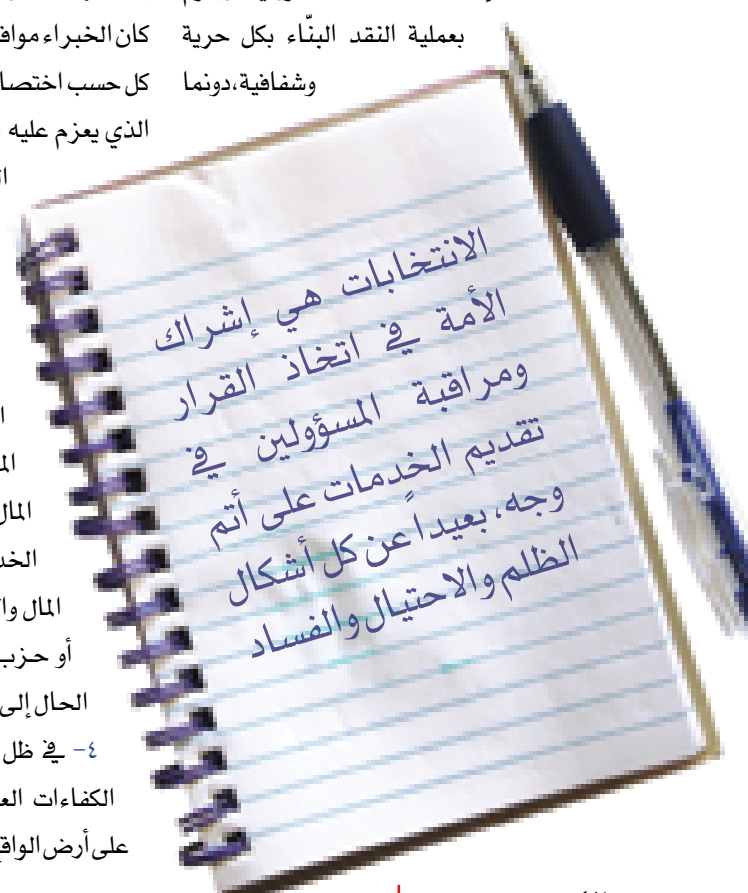 بعملية النقد البنّاء بكل حرية
وشفافية،دونما
كان الخبراء
كل حسب
الذي يعزم عليه
الانتخابات هي إشراك
الأمة في اتخاذ القرار
ومراقبة المسؤولين في
تقديم الخدمات على أتم
وجه، بعيداً عن كل أشكال
الظلم والاحتيال والفساد
المال
أو حزب
الحال إلى
٤- في ظل
الكفاءات
على أرض